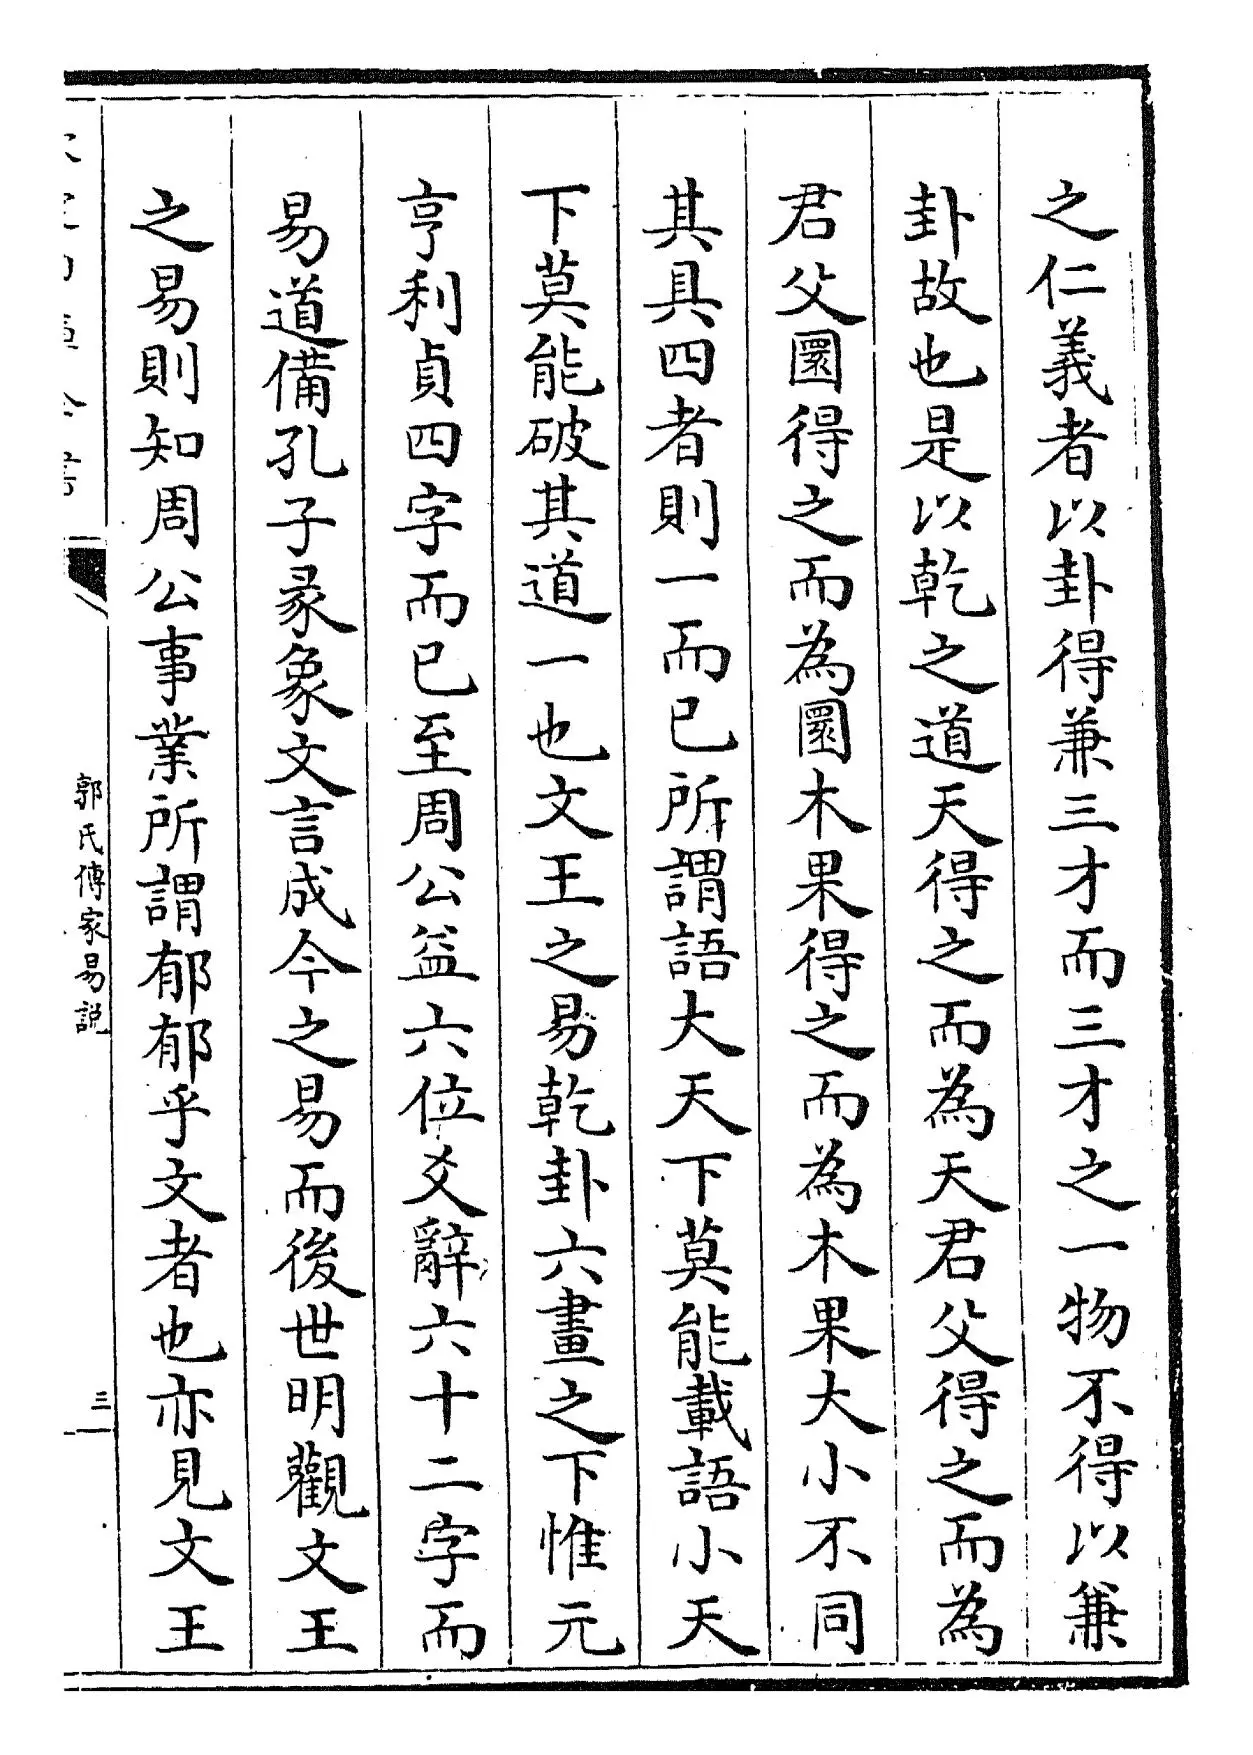 之仁義者以卦得兼三才而三才之一物不得以兼
卦故也是以乾之道天得之而為天君父得之而為
君父圜得之而為圜木果得之而為木果大小不同
其具四者則一而已所謂語大天下莫能載語小天
下莫能破其道一也文王之易乾卦六畫之下惟元
亨利貞四字而已至周公益六位爻辭六十二字而
易道備孔子彖象文言成今之易而後世明觀文王
之易則知周公事業所謂郁郁乎文者也亦見文王
郭氏傳家易說
三